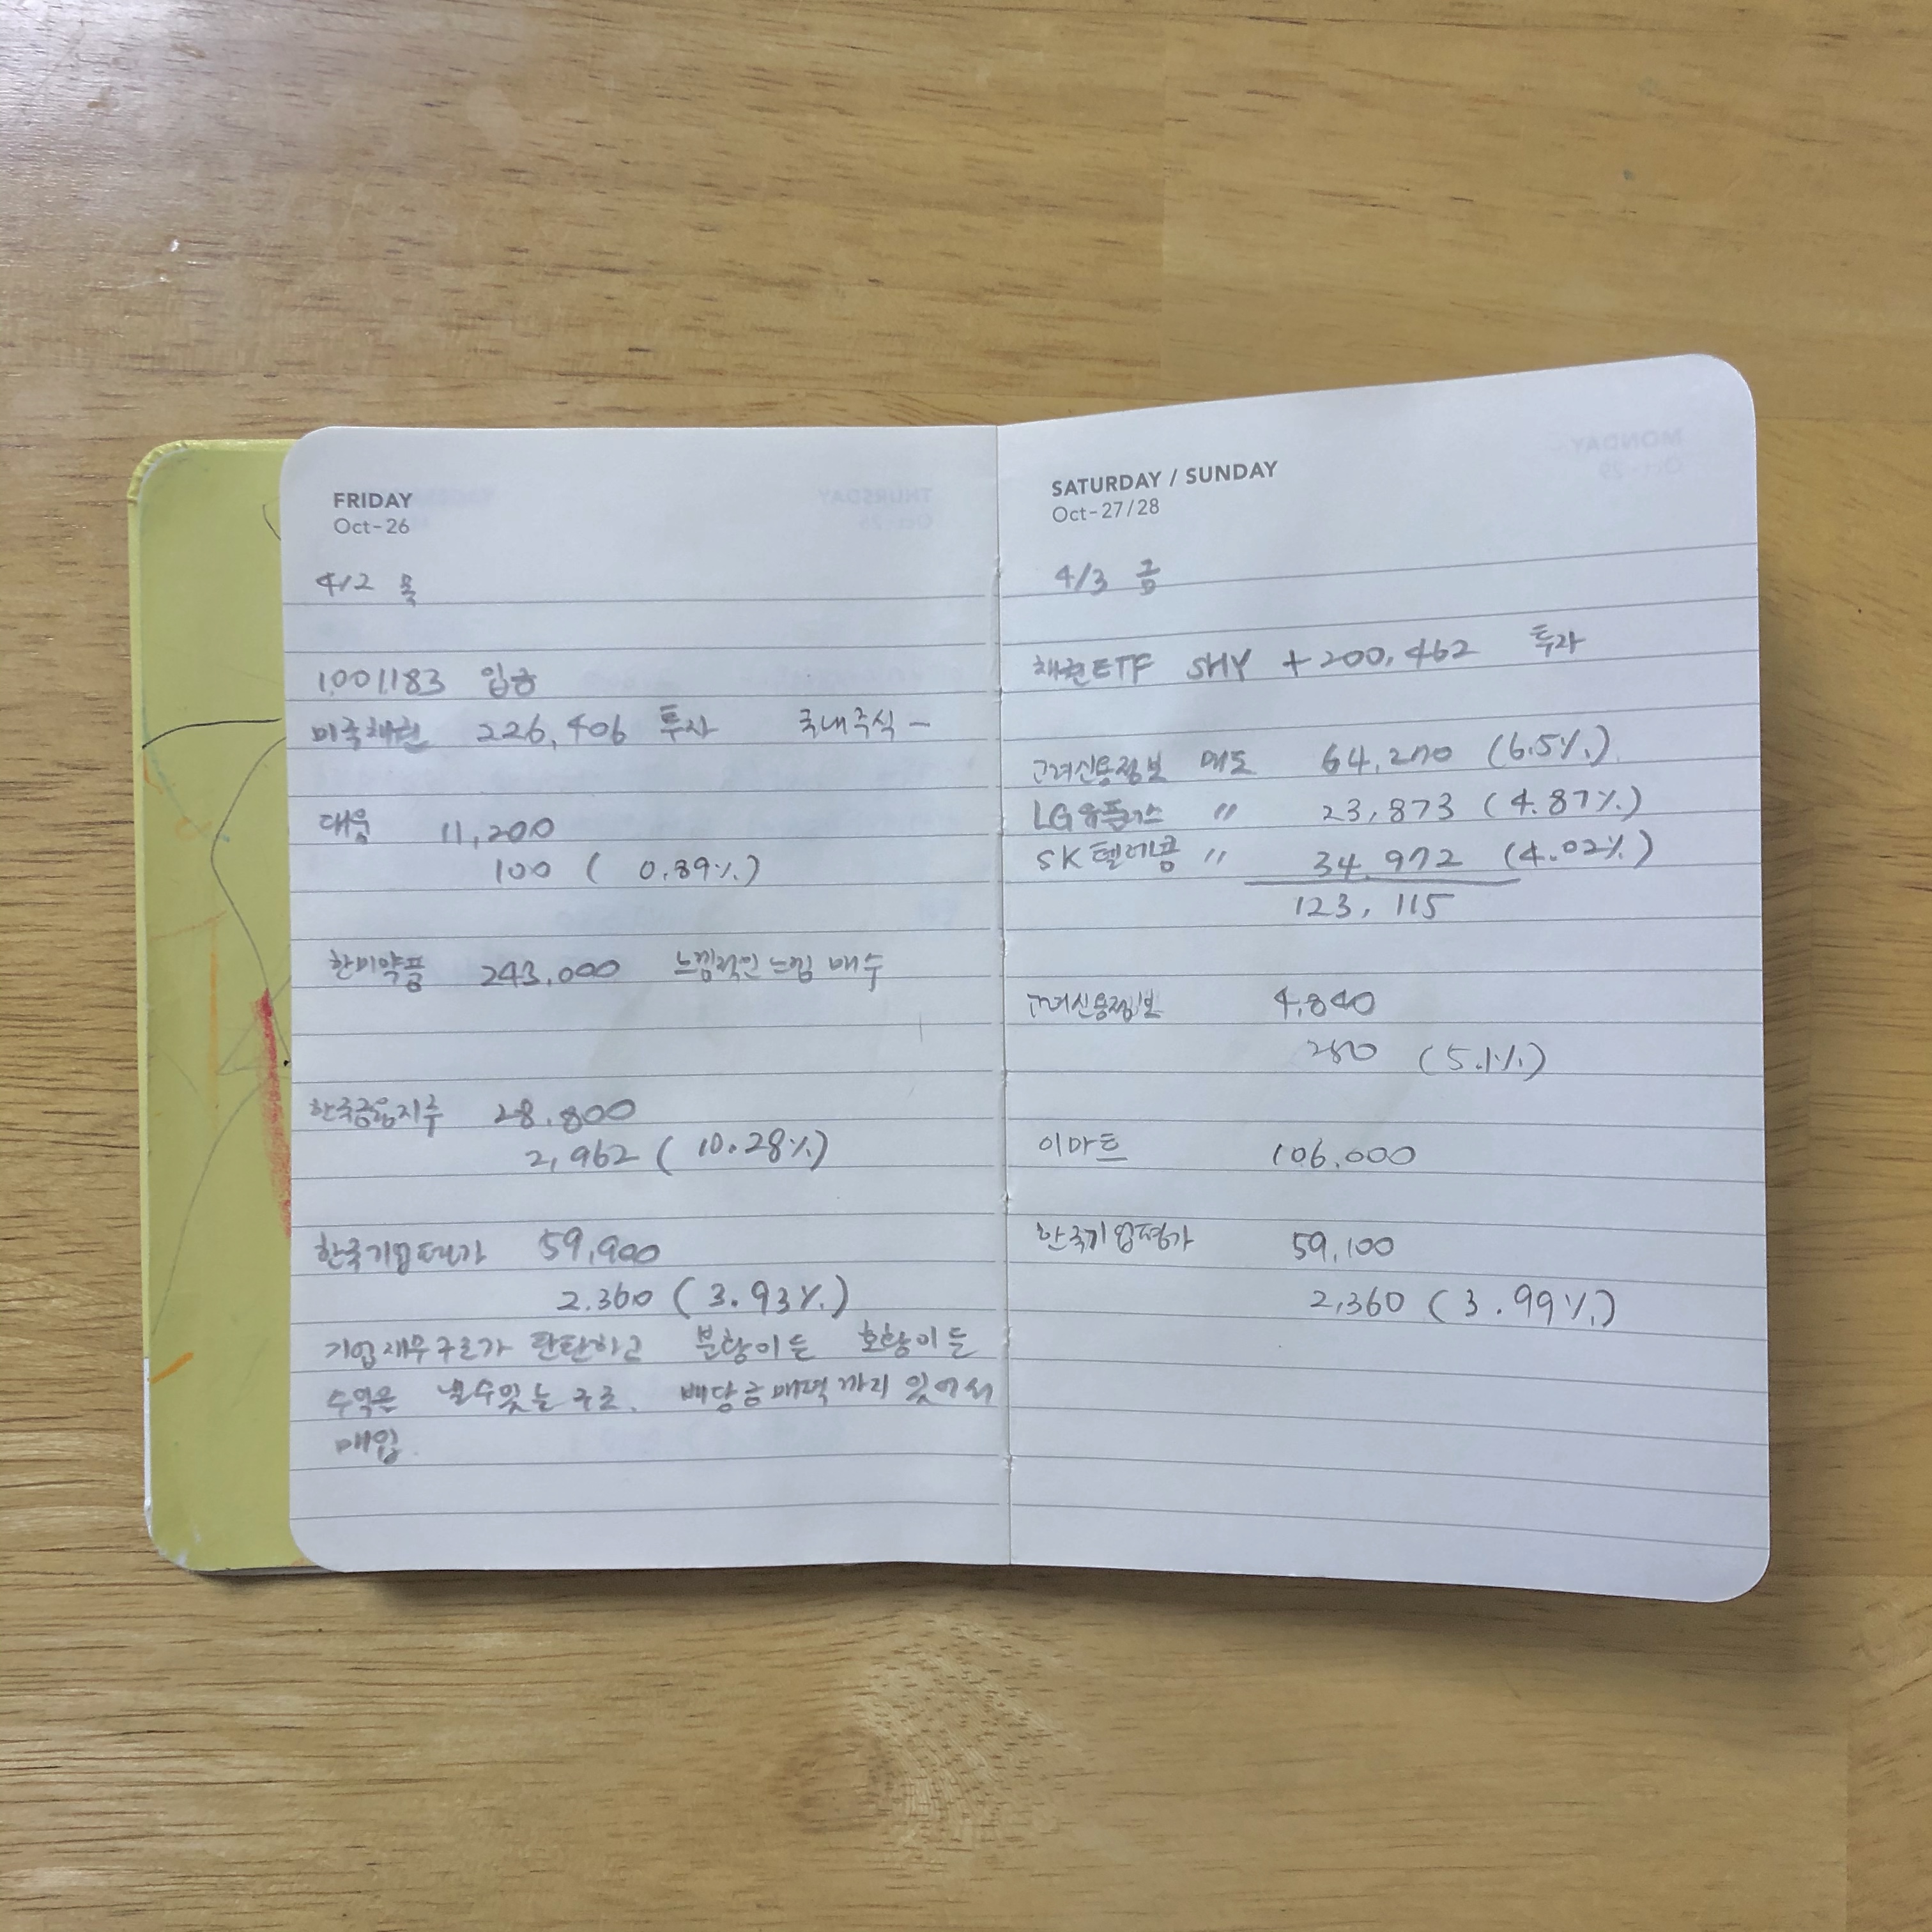 FRIDAY
Oct-26
4/2 목
1,001,183 입금
미국채권 226,406 투자 국내주식 -
대웅 11,200
100 ( 0.89%)
한미약품 243,000 느낌적인 느낌 매수
한국금융지주 28,800
2,962 ( 10.28%)
한국기업평가 59,900
2.360 ( 3.93%)
기업재무구조가 탄탄하고 불황이든 호황이든
수익은 낼수있는 구조. 배당금매력까지 있어서
매입.
SATURDAY / SUNDAY
Oct-27/28
4/3 금
채권ETF SHY +200,462 투자
고려신용정보 매도 64,270 (6.5%)
LG유플러스 〃 23,873 (4.87%)
SK텔레콤 〃 34,972 (4.02%)
123,115
고려신용정보 4,840
250 (5.1%)
이마트 106,000
한국기업평가 59,100
2,360 ( 3.99%)